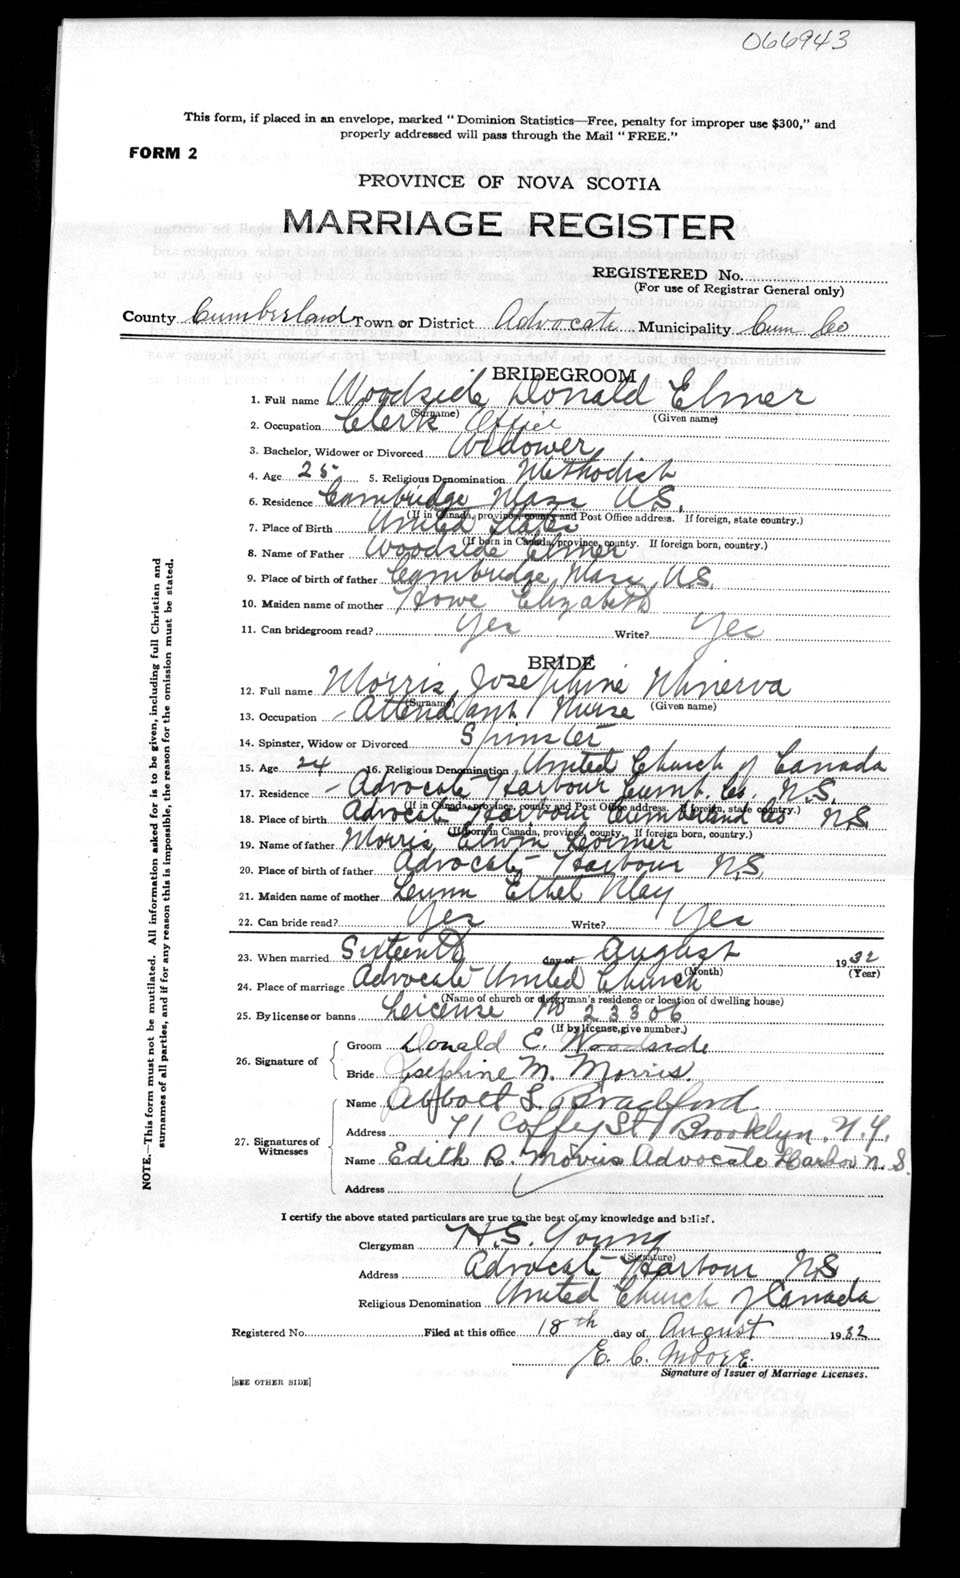 066943
This form, if placed in an envelope, marked "Dominion Statistics—Free, penalty for improper use $300," and
properly addressed will pass through the Mail "FREE."
FORM 2
PROVINCE OF NOVA SCOTIA
MARRIAGE REGISTER
REGISTERED No.
(For use of Registrar General only)
County Cumberland Town or District Advocate Municipality Cum Co
BRIDEGROOM
1. Full name Woodside Donald Elmer
(Surname) (Given name)
2. Occupation Clerk Office
3. Bachelor, Widower or Divorced Widower
4. Age 25 5. Religious Denomination Methodist
6. Residence Cambridge Mass U.S.
(If in Canada, province, county and Post Office address. If foreign, state country.)
7. Place of Birth United States
(If born in Canada, province, county. If foreign born, country.)
8. Name of Father Woodside Elmer
9. Place of birth of father Cambridge Mass U.S.
10. Maiden name of mother Howe Elizabeth
11. Can bridegroom read? Yes Write? Yes
BRIDE
12. Full name Morris, Josephine Minerva
(Surname) (Given name)
13. Occupation - Attendant Nurse
14. Spinster, Widow or Divorced Spinster
15. Age 24 16. Religious Denomination United Church of Canada
17. Residence - Advocate Harbour Cumb. Co. N.S.
(If in Canada, province, county and Post Office address. If foreign, state country.)
18. Place of birth Advocate Harbour Cumberland Co N S
(If born in Canada, province, county. If foreign born, country.)
19. Name of father Morris, Elwin Lorimer
20. Place of birth of father Advocate Harbour N.S.
21. Maiden name of mother Ethel May
22. Can bride read? Yes Write? Yes
23. When married Sixteenth day of August 1932
(Month) (Year)
24. Place of marriage Advocate United Church
(Name of church or clergyman's residence or location of dwelling house)
25. By license or banns License No 23306
(If by license, give number.)
26. Signature of
Groom Donald E. Woodside
Bride Josephine M. Morris.
27. Signatures of Witnesses
Name Abbott S. Bradford
Address 71 Coffey St Brooklyn, N.Y.
Name Edith R. Morris Advocate Harbor N.S.
Address
I certify the above stated particulars are true to the best of my knowledge and belief.
Clergyman H.S. Young
(Signature)
Address Advocate Harbour N.S
Religious Denomination United Church of Canada
Registered No. Filed at this office 18th day of August 1932
E. C. Moore
Signature of Issuer of Marriage Licenses.
[SEE OTHER SIDE]
NOTE.—This form must not be mutilated. All information asked for is to be given, including full Christian and
surnames of all parties, and if for any reason this is impossible, the reason for the omission must be stated.